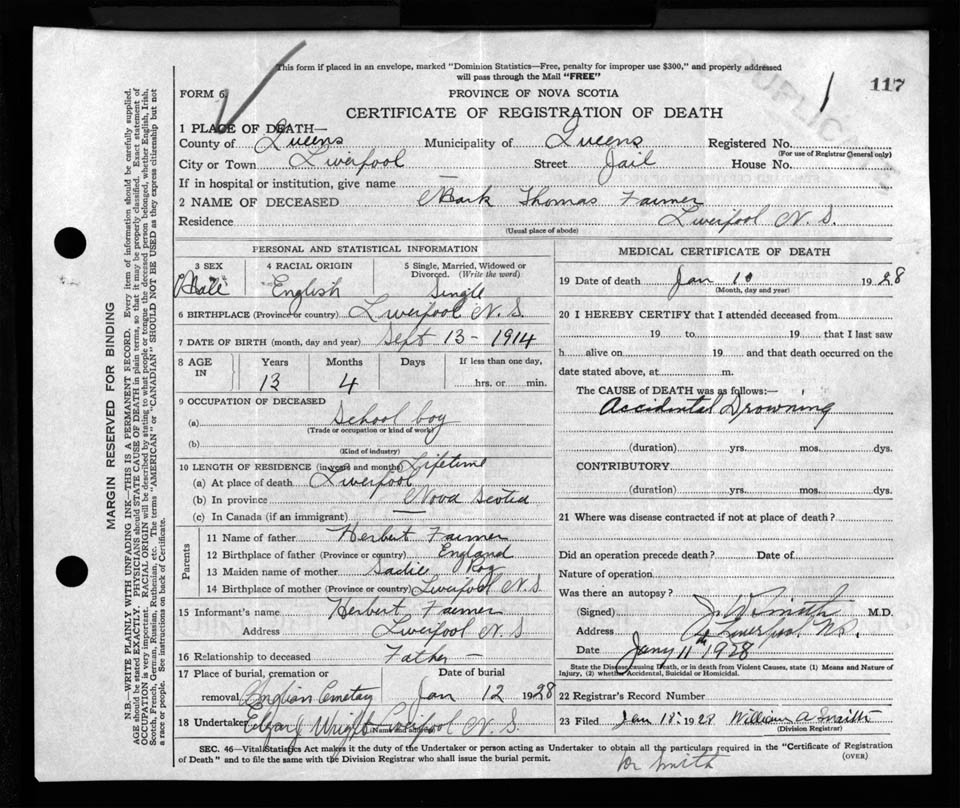 This form if placed in an envelope, marked "Dominion Statistics—Free, penalty for improper use $300," and properly addressed
will pass through the Mail "FREE"
117
FORM 6
PROVINCE OF NOVA SCOTIA
CERTIFICATE OF REGISTRATION OF DEATH
1 PLACE OF DEATH—
County of Queens Municipality of Queens Registered No.
(For use of Registrar General only)
City or Town Liverpool Street Jail House No.
If in hospital or institution, give name —
2 NAME OF DECEASED Mark Thomas Farmer
Residence Liverpool N. S.
(Usual place of abode)
PERSONAL AND STATISTICAL INFORMATION
3 SEX 4 RACIAL ORIGIN 5 Single, Married, Widowed or
Divorced. (Write the word)
Male English Single
6 BIRTHPLACE (Province or country) Liverpool N. S.
7 DATE OF BIRTH (month, day and year) Sept 13 - 1914
8 AGE IN Years Months Days If less than one day,
13 4 hrs. or min.
9 OCCUPATION OF DECEASED
(a) School boy
(Trade or occupation or kind of work)
(b)
(Kind of industry)
10 LENGTH OF RESIDENCE (in years and months) Lifetime
(a) At place of death Liverpool
(b) In province Nova Scotia
(c) In Canada (if an immigrant) —
Parents
11 Name of father Herbert Farmer
12 Birthplace of father (Province or country) England
13 Maiden name of mother Sadie Roy
14 Birthplace of mother (Province or country) Liverpool N.S.
15 Informant's name Herbert Farmer
Address Liverpool N. S
16 Relationship to deceased Father —
17 Place of burial, cremation or Date of burial
removal Cemetary Jan 12 1928
18 Undertaker Wright Liverpool N. S.
(Name and address)
MEDICAL CERTIFICATE OF DEATH
19 Date of death Jan 10 1928
(Month, day and year)
20 I HEREBY CERTIFY that I attended deceased from
19 to 19 that I last saw
h alive on 19 and that death occurred on the
date stated above, at m.
The CAUSE of DEATH was as follows:—
Accidental Drowning
(duration) yrs. mos. dys.
CONTRIBUTORY
(duration) yrs. mos. dys.
21 Where was disease contracted if not at place of death?
Did an operation precede death? Date of
Nature of operation
Was there an autopsy?
(Signed) J. W. Smith M.D.
Address Liverpool N.S.
Date Jany 11th 1928
State the Disease causing Death, or in death from Violent Causes, state (1) Means and Nature of
Injury, (2) whether Accidental, Suicidal or Homicidal.
22 Registrar's Record Number
23 Filed Jan 18th 1928 William A Smith
(Division Registrar)
SEC. 46—Vital Statistics Act makes it the duty of the Undertaker or person acting as Undertaker to obtain all the particulars required in the "Certificate of Registration
of Death" and to file the same with the Division Registrar who shall issue the burial permit.
(OVER)
Dr Smith
MARGIN RESERVED FOR BINDING
N.B.—WRITE PLAINLY WITH UNFADING INK—THIS IS A PERMANENT RECORD. Every item of information should be carefully supplied.
AGE should be stated EXACTLY. PHYSICIANS should STATE CAUSE OF DEATH in plain terms, so that it may be properly classified. Exact statement of
OCCUPATION is very important. RACIAL ORIGIN will be described by stating to what people or tongue the deceased person belonged, whether English, Irish,
Scotch, French, German, Russian, Ruthenian, etc. The terms "AMERICAN" or "CANADIAN" SHOULD NOT BE USED as they express citizenship but not
a race or people. See instructions on back of Certificate.